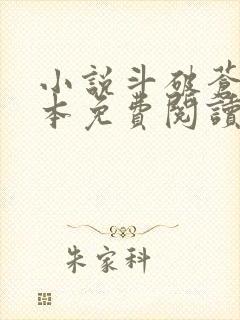 小説斗破蒼
本免費閱讀
朱家科